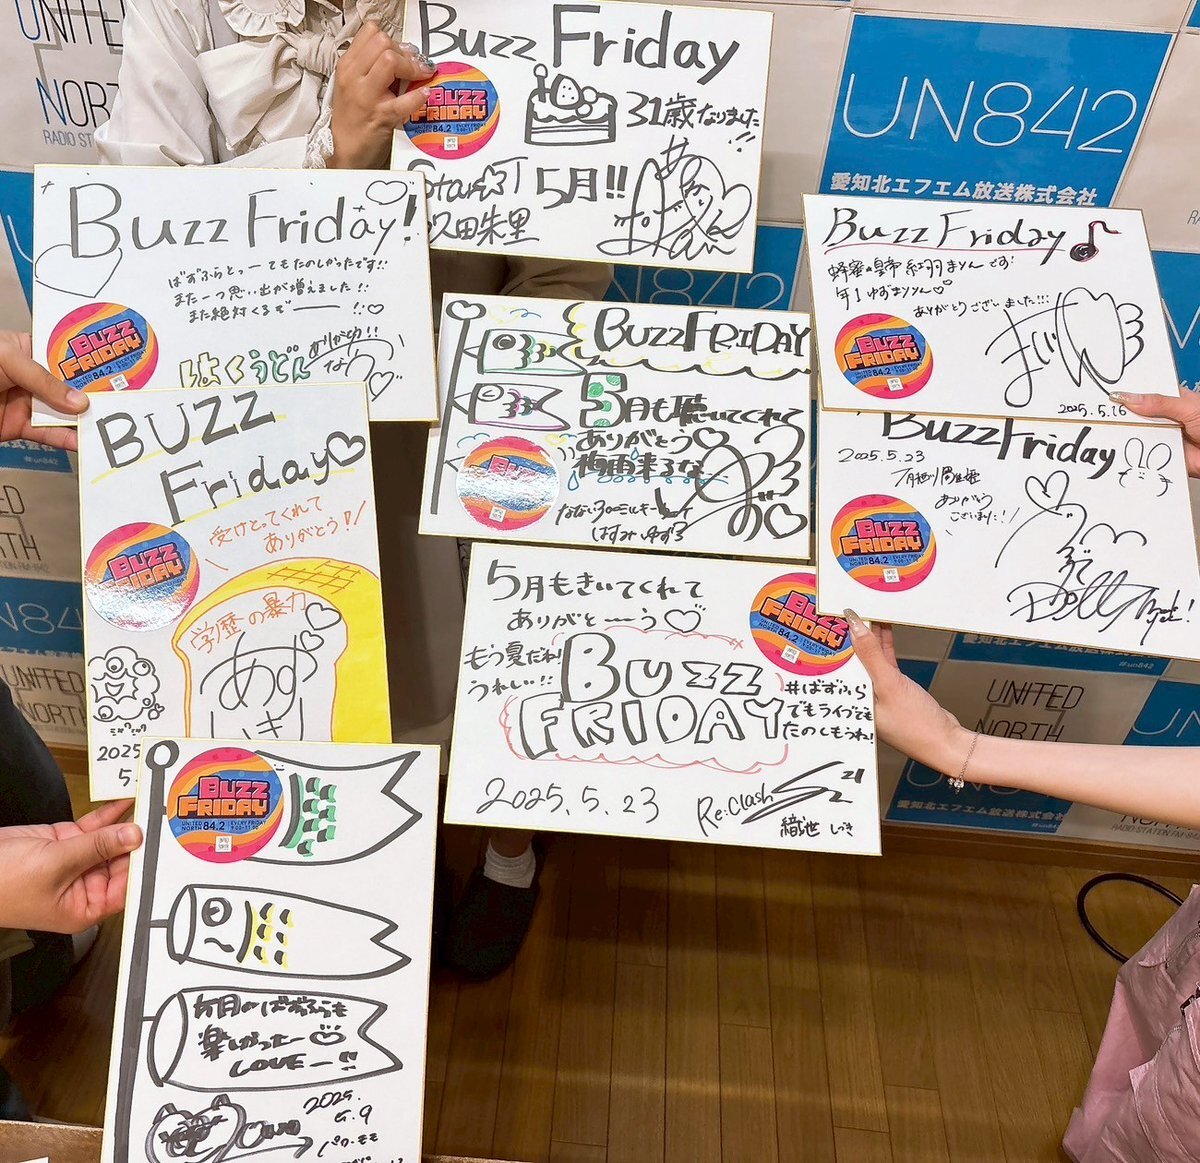 UNITED
NORTH
RADIO ST
UN842
愛知北エフエム放送株式会社
Buzz Friday
31歳なりました!!
Star☆T
5月!!
沢田朱里
Buzz Friday!
ばずふらとっーてもたのしかったです!!
また一つ思い出が増えました!!
また絶対くるぞーーー!!♡
はくうどん
ありがとう!!
BUZZ FRIDAY
UNITED NORTH 84.2 EVERY FRIDAY
BUZZ FRIDAY
5月も聴いてくれて
ありがとう♡
梅雨来るな
はすみ ゆずる
Buzz Friday
蜂蜜の皇帝 紅羽まりんです!
年1ゆずまりりん♡
ありがとうございました!!!
2025.5.16
Buzz Friday
2025.5.23
ありがとう
ございました!!
BUZZ
Friday♡
受けとってくれて
ありがとう!!
学歴の暴力
ミャクミャク
2025
5.
5月もきいてくれて
ありがと〜〜う♡
もう夏だね!
うれしい!!
BUZZ
FRIDAY
#ばずふら
でもライブでも
たのしもうね!
2025.5.23
Re:Clash
織世 しづき
BUZZ
FRIDAY
UNITED NORTH 84.2 EVERY FRIDAY 9:00-11:00
今月のばずふらも
楽しかったー
LOVEー!!
2025.
5.9
UN842
愛知北エフエム放送株式会社
#un842
UNITED
NORTH
RADIO STATION